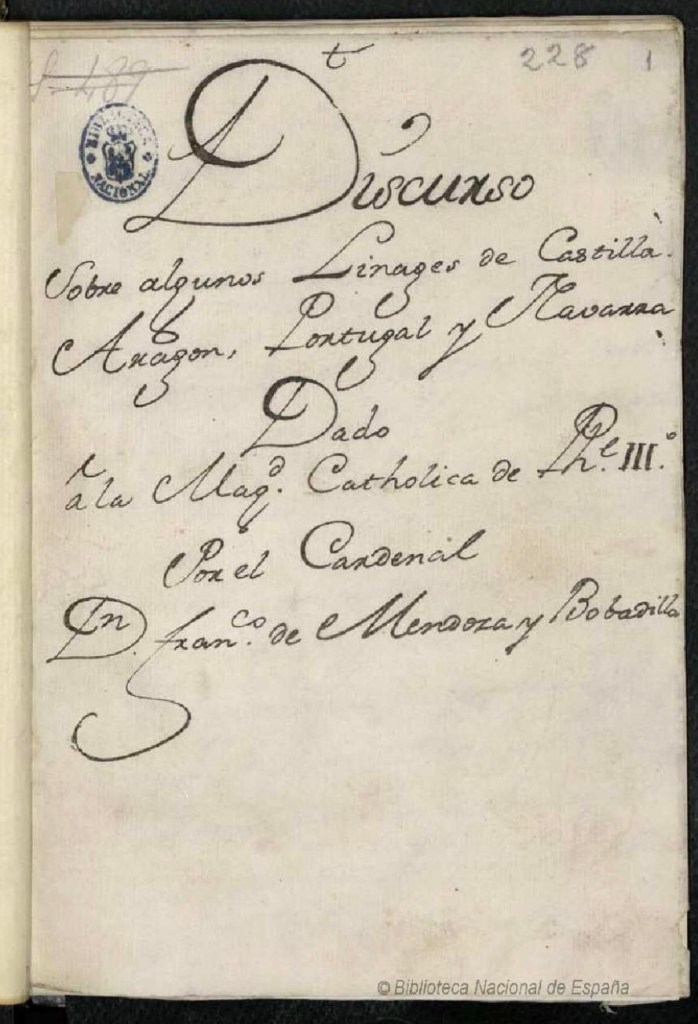 t
228 1
S-489
BIBLIOTECA NACIONAL
Discurso
Sobre algunos Linages de Castilla.
Aragon, Portugal y Navarra
Dado
a la Magd. Catholica de Phe. III.º
Por el Cardenal
Dn. franco. de Mendoza y Bobadilla
© Biblioteca Nacional de España